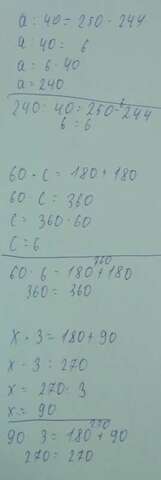 a : 40 = 250 - 244
a : 40 = 6
a = 6 · 40
a = 240
240 : 40 = 250 - 244
6
6 = 6
60 · c = 180 + 180
60 · c = 360
c = 360 : 60
c = 6
60 · 6 = 180 + 180
360
360 = 360
x · 3 = 180 + 90
x · 3 = 270
x = 270 : 3
x = 90
90 · 3 = 180 + 90
270 = 270